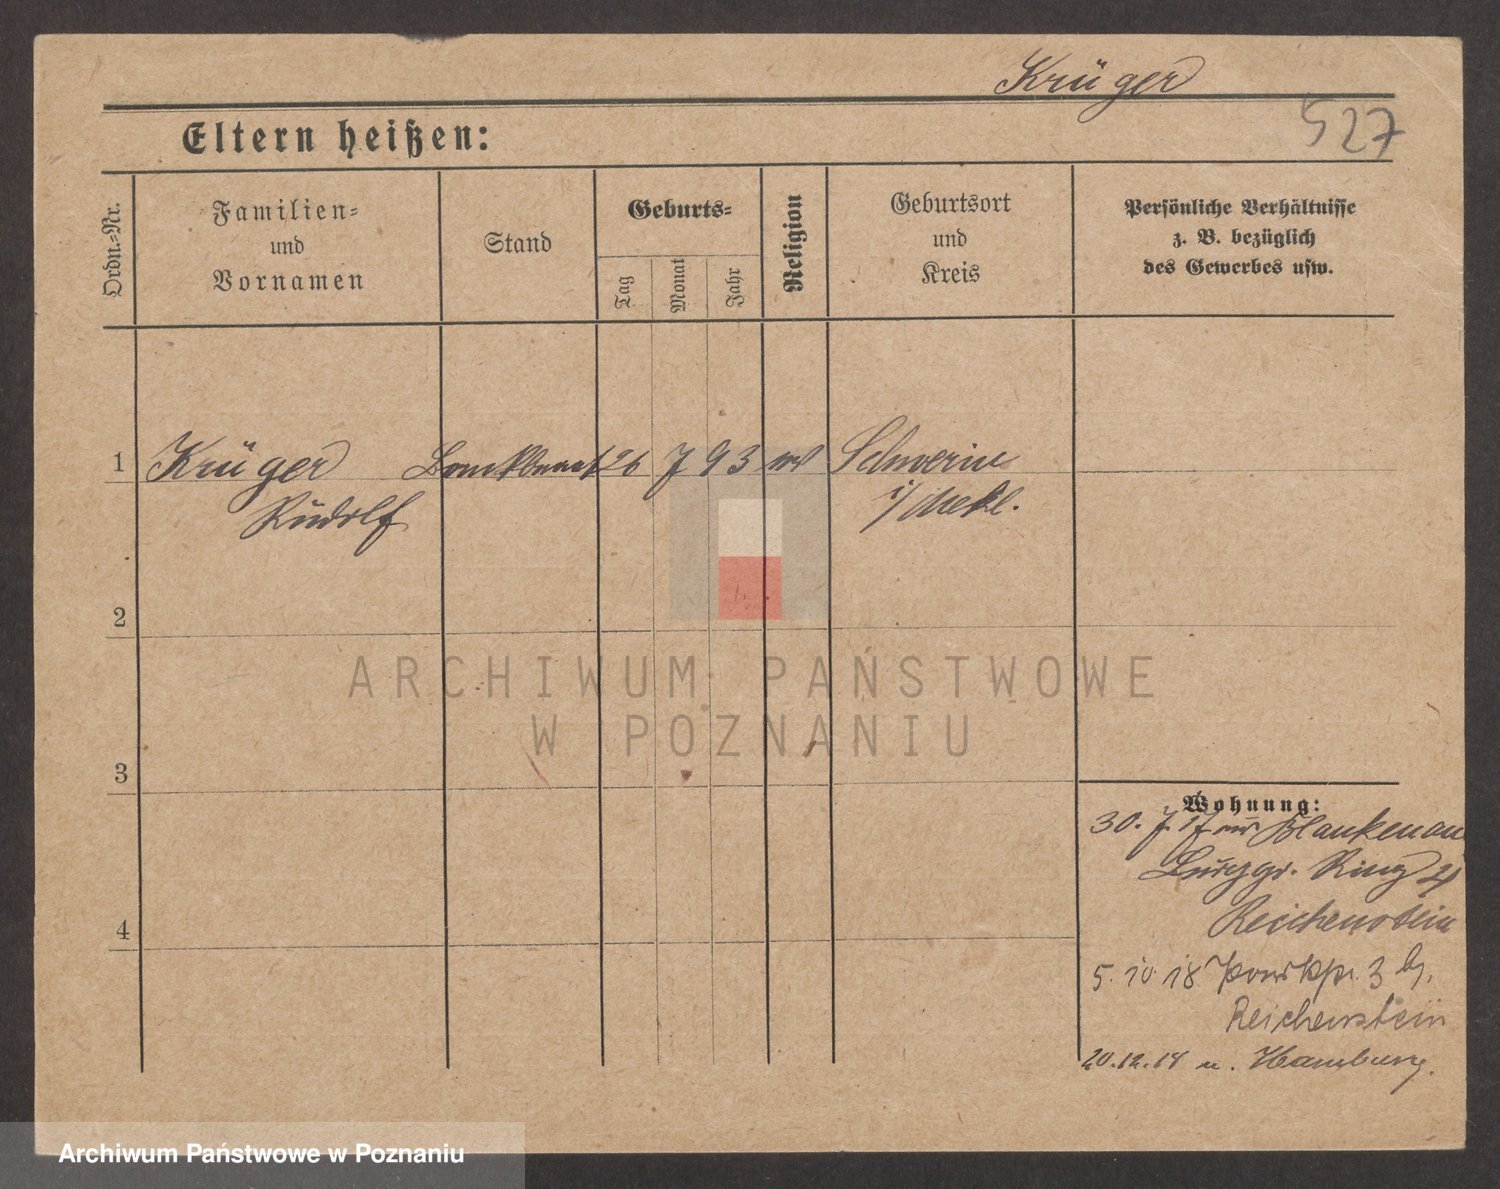 Krüger
527
Eltern heißen:
Ordn.-Nr.
Familien-
und
Vornamen
Stand
Geburts-
Tag
Monat
Jahr
Religion
Geburtsort
und
Kreis
Persönliche Verhältnisse
z. B. bezüglich
des Gewerbes usw.
1 Krüger Bankbeamt 26 7 93 Schwerin
Rudolf i/Mekl.
2
ARCHIWUM PAŃSTWOWE
W POZNANIU
3
4
Wohnung:
30. 7. 17 aus Blankenau
Burggr. Ring
Reichenstein
5. 10 18 3 b.
Reichenstein
20.12.18 n. Hamburg.
Archiwum Państwowe w Poznaniu